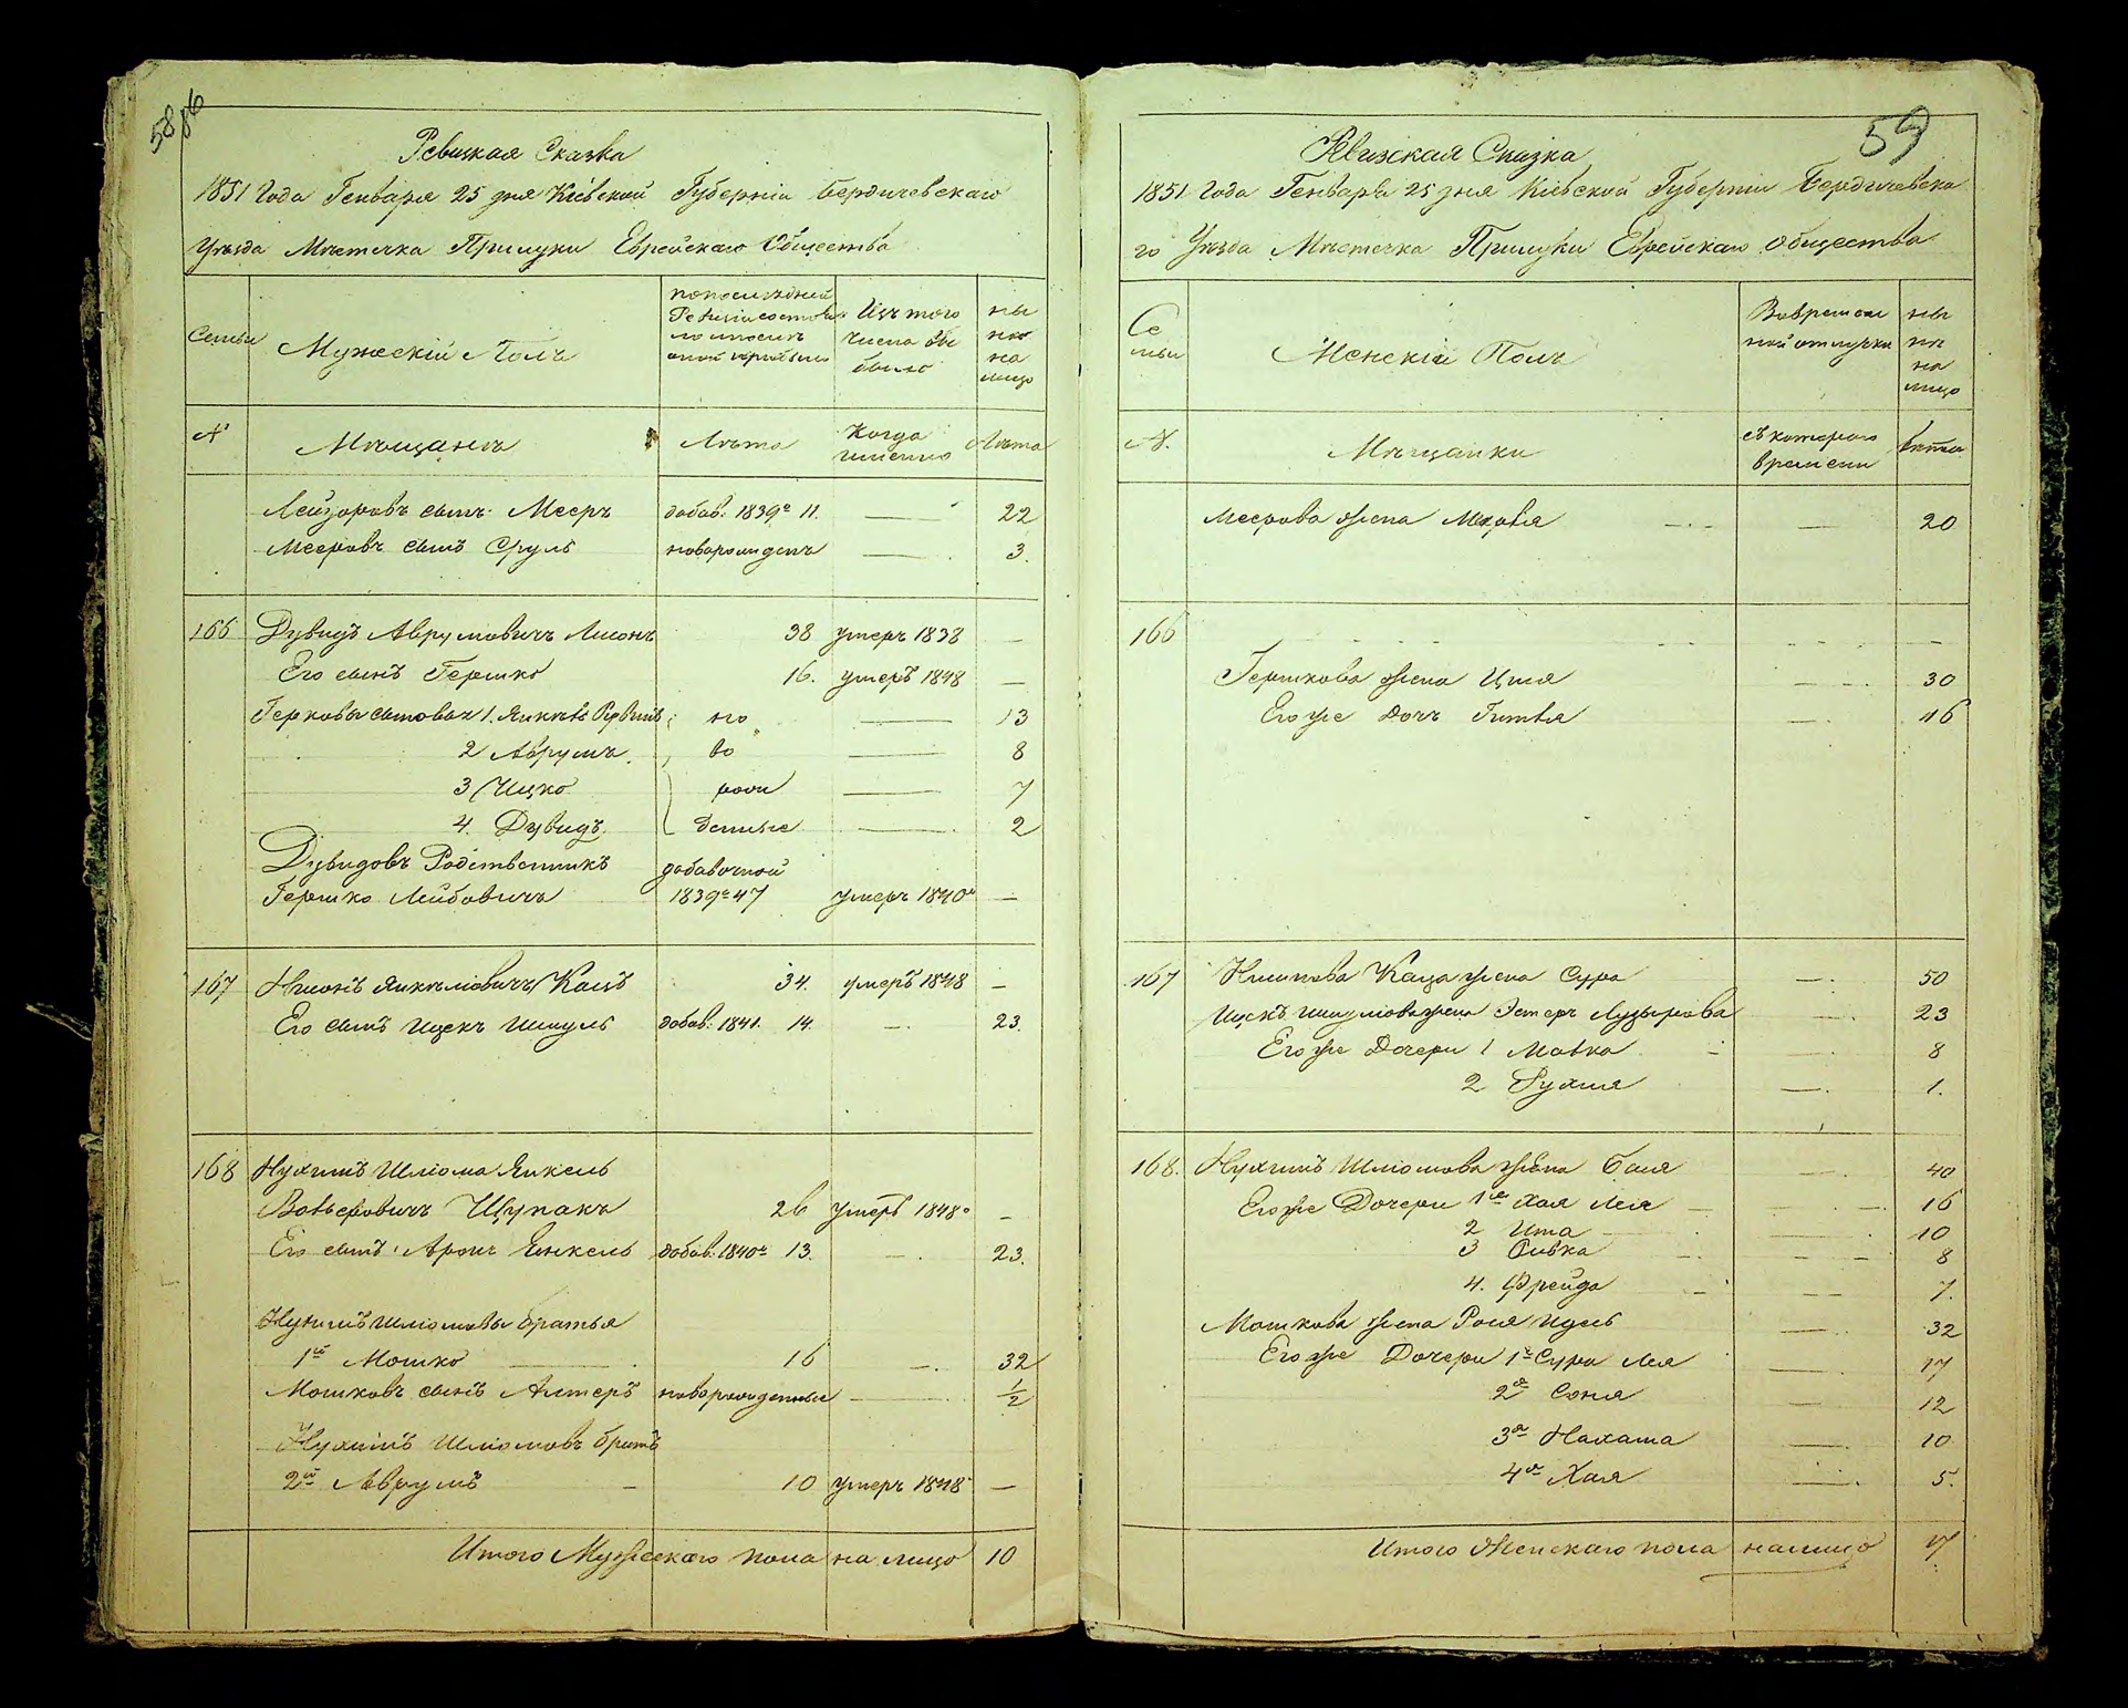 58
86
Ревизкая Сказка
1851 Года Генваря 25 дня Кіевской Губерніи Бердичевскаго
Уѣзда Мѣстечка Прилуки Еврейскаго Общества
Семьи
Мужескій Полъ
Изъ того числа вы было
ны нѣ на лицо
№
Мѣщанѣ
Лѣта
Когда именно
Лѣта
Лейзоровъ сынъ Мееръ добав. 1839г 11. — 22
Мееровъ сынъ Сруль новорожденъ — 3.
166 Дувидъ Аврумовичъ 38 умеръ 1838 —
Его сынъ Гершко 16. умеръ 1848 —
сыновья 1. но — 13
2 Аврумъ во — 8
3 Ицко рож — 7
4. Дувидъ денные — 2
Дувидовъ Родственникъ добавочной
Гершко Лейбовичъ 1839г 47 умеръ 1840г —
167 Янкелювичъ Кацъ 34. умеръ 1848 —
Его сынъ Ицекъ Шмуль добав. 1841. 14. — 23.
168 Нухимъ Шліома Янкель
Щупакъ 26 умеръ 1848г —
Его сынъ Аронъ Янкель добав. 1840г 13. — 23.
Нухимъ Шліомовы братья
1й Мошко — 16 — 32
Мошковъ сынъ Алтеръ новорожденные — 1/2
Нухимъ Шліомовъ братъ
2й Аврумъ — 10 умеръ 1848 —
Итого Мужескаго пола на лицо 10
59
Ревизская Сказка
1851 Года Генваря 25 дня Кіевской Губерніи Бердичевска
го Уѣзда Мѣстечка Прилуки Еврейскаго Общества
Се
мьи
Женскій Полъ
Вовремен
ной отлучки
ны
нѣ
на
лицо
№.
Мѣщанки
съ котораго
времени
Лѣта
Меерова жена — 20
166
Гершкова жена — 30
Его же дочь Гитля — 16
167 Каца жена Сура — 50
Ицекъ Шмулова жена Эстеръ — 23
Его же Дочери 1 — 8
2 Рухля — 1.
168. Нухимъ Шліомова жена Бася — 40
Его же Дочери 1я Хая Лея — 16
2 Ита — 10
3 Ривка — 8
4. Фрейда — 7.
Мошкова жена — 32
Его же Дочери 1я Сура Лея — 17
2я Соня — 12
3я — 10
4я Хая — 5.
Итого Женскаго пола налицо 17